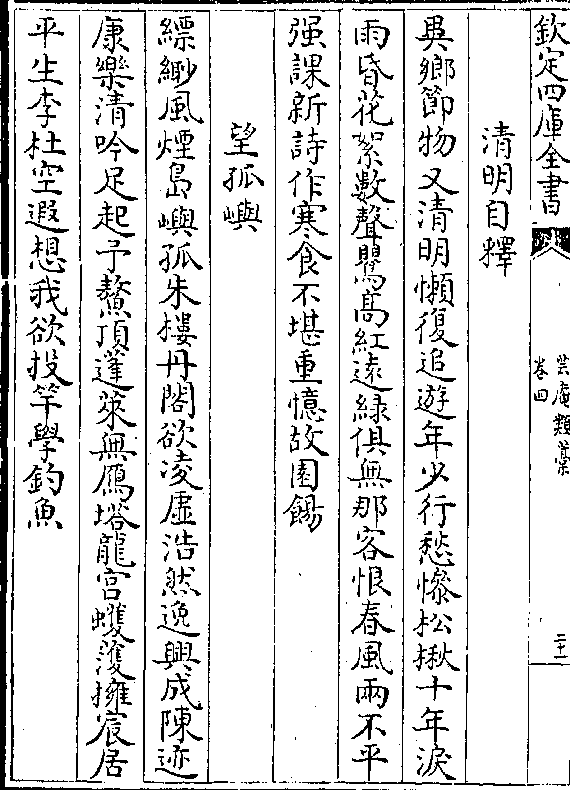 欽定四庫全書
芸庵類藁
卷四
二十一
清明自釋
吳鄉節物又清明懶復追遊年少行愁慘松楸十年淚
雨昏花絮數聲鸎髙紅逺緑俱無那客恨春風兩不平
强課新詩作寒食不堪重憶故園餳
望孤嶼
縹緲風煙島嶼孤朱樓丹閣欲凌虛浩然逸興成陳迹
康樂清吟足起予鰲頂蓬萊無鴈塔龍宫蠖濩擁宸居
平生李杜空遐想我欲投竿學釣魚